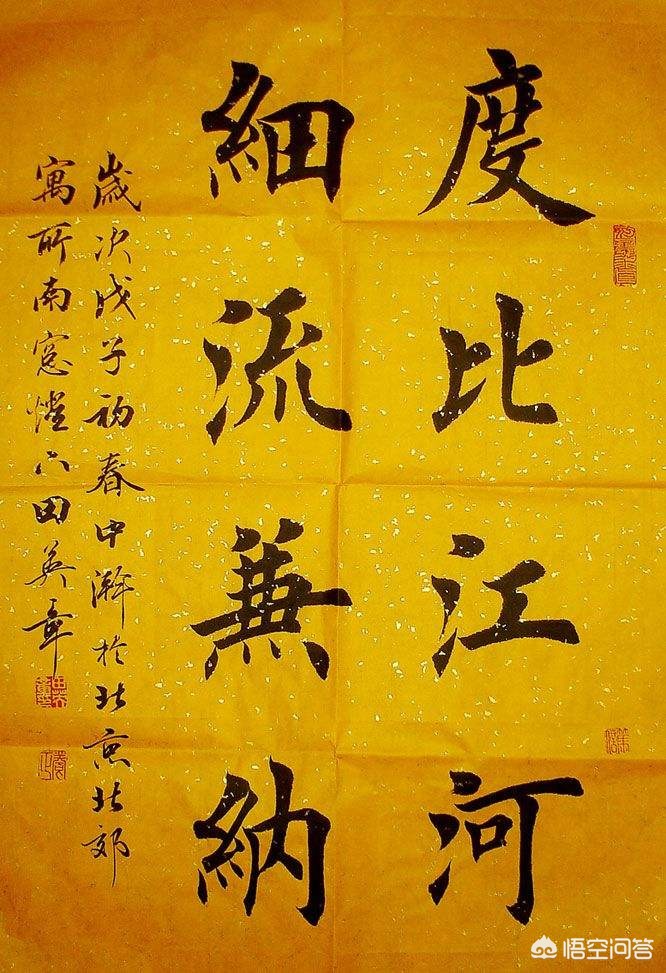 度比江河
細流蒹納
歲次戊子初春中澣於北京北郊
寓所南窓燈下田英章
悟空问答